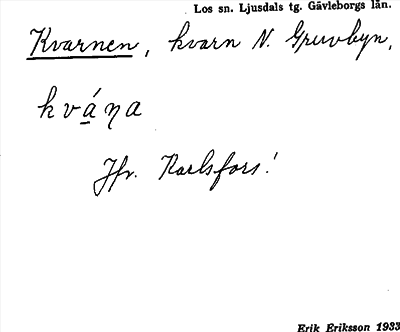 Los sn. Ljusdals tg. Gävleborgs län.
Kvarnen, kvarn N. Gruvbyn,
kvánа
Jfr. Karlsfors!
Erik Eriksson 1933